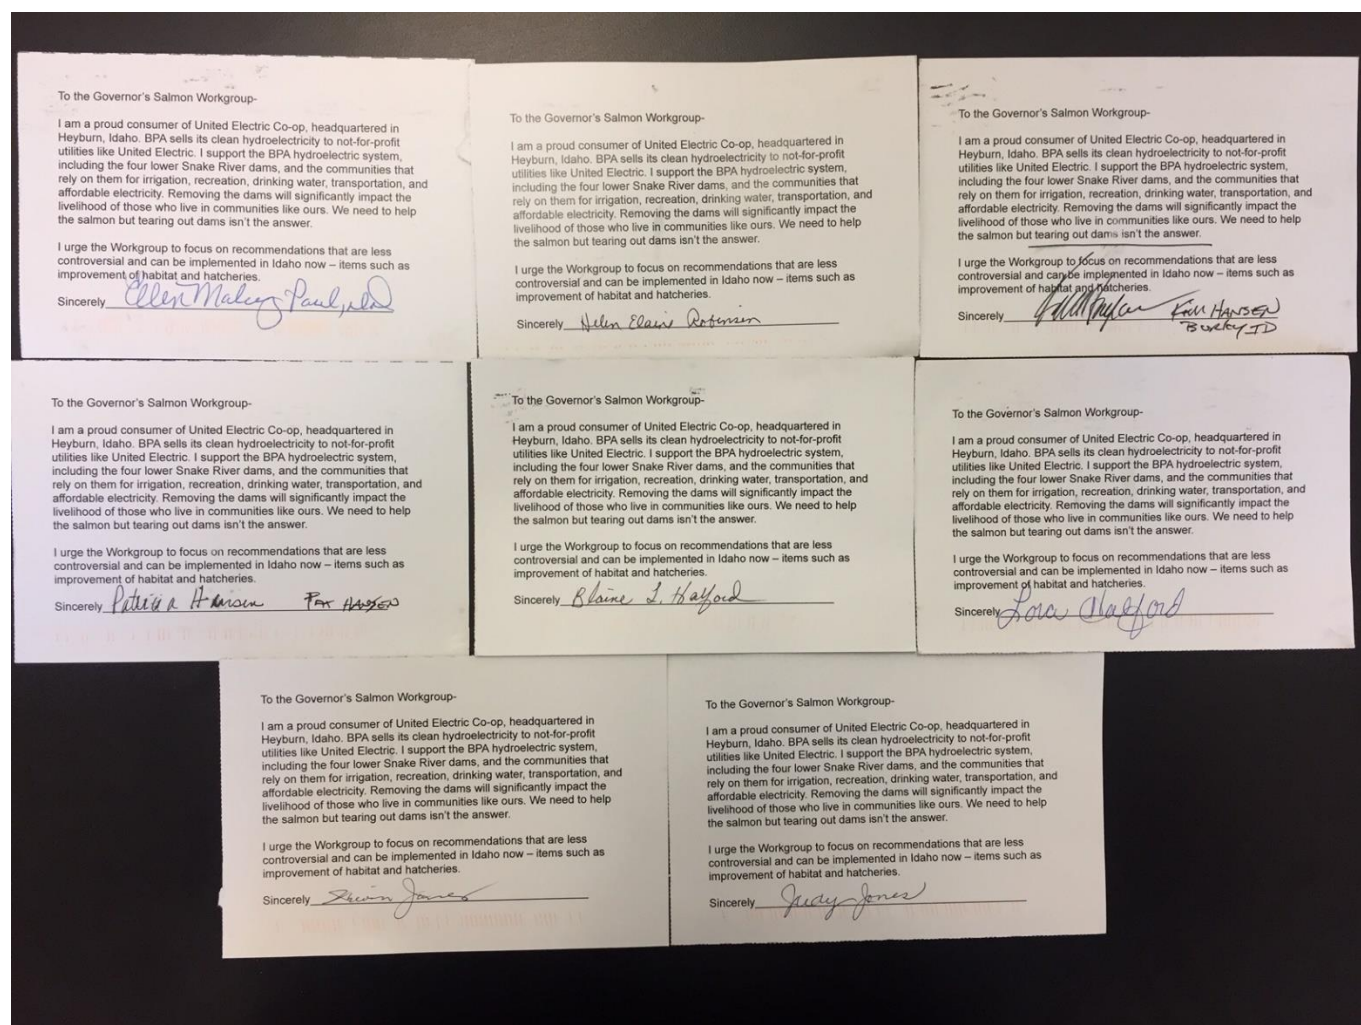 To the Governor's Salmon Workgroup-
I am a proud consumer of United Electric Co-op, headquartered in
Heyburn, Idaho. BPA sells its clean hydroelectricity to not-for-profit
utilities like United Electric. I support the BPA hydroelectric system,
including the four lower Snake River dams, and the communities that
rely on them for irrigation, recreation, drinking water, transportation, and
affordable electricity. Removing the dams will significantly impact the
livelihood of those who live in communities like ours. We need to help
the salmon but tearing out dams isn't the answer.
I urge the Workgroup to focus on recommendations that are less
controversial and can be implemented in Idaho now – items such as
improvement of habitat and hatcheries.
Sincerely Ellen Paul,
To the Governor's Salmon Workgroup-
I am a proud consumer of United Electric Co-op, headquartered in
Heyburn, Idaho. BPA sells its clean hydroelectricity to not-for-profit
utilities like United Electric. I support the BPA hydroelectric system,
including the four lower Snake River dams, and the communities that
rely on them for irrigation, recreation, drinking water, transportation, and
affordable electricity. Removing the dams will significantly impact the
livelihood of those who live in communities like ours. We need to help
the salmon but tearing out dams isn't the answer.
I urge the Workgroup to focus on recommendations that are less
controversial and can be implemented in Idaho now – items such as
improvement of habitat and hatcheries.
Sincerely Helen Elaine Robinson
To the Governor's Salmon Workgroup-
I am a proud consumer of United Electric Co-op, headquartered in
Heyburn, Idaho. BPA sells its clean hydroelectricity to not-for-profit
utilities like United Electric. I support the BPA hydroelectric system,
including the four lower Snake River dams, and the communities that
rely on them for irrigation, recreation, drinking water, transportation, and
affordable electricity. Removing the dams will significantly impact the
livelihood of those who live in communities like ours. We need to help
the salmon but tearing out dams isn't the answer.
I urge the Workgroup to focus on recommendations that are less
controversial and can be implemented in Idaho now – items such as
improvement of habitat and hatcheries.
Sincerely KIM HANSEN
BURLEY ID
To the Governor's Salmon Workgroup-
I am a proud consumer of United Electric Co-op, headquartered in
Heyburn, Idaho. BPA sells its clean hydroelectricity to not-for-profit
utilities like United Electric. I support the BPA hydroelectric system,
including the four lower Snake River dams, and the communities that
rely on them for irrigation, recreation, drinking water, transportation, and
affordable electricity. Removing the dams will significantly impact the
livelihood of those who live in communities like ours. We need to help
the salmon but tearing out dams isn't the answer.
I urge the Workgroup to focus on recommendations that are less
controversial and can be implemented in Idaho now – items such as
improvement of habitat and hatcheries.
Sincerely Patricia Hansen PAT HANSEN
To the Governor's Salmon Workgroup-
I am a proud consumer of United Electric Co-op, headquartered in
Heyburn, Idaho. BPA sells its clean hydroelectricity to not-for-profit
utilities like United Electric. I support the BPA hydroelectric system,
including the four lower Snake River dams, and the communities that
rely on them for irrigation, recreation, drinking water, transportation, and
affordable electricity. Removing the dams will significantly impact the
livelihood of those who live in communities like ours. We need to help
the salmon but tearing out dams isn't the answer.
I urge the Workgroup to focus on recommendations that are less
controversial and can be implemented in Idaho now – items such as
improvement of habitat and hatcheries.
Sincerely Blaine L. Halford
To the Governor's Salmon Workgroup-
I am a proud consumer of United Electric Co-op, headquartered in
Heyburn, Idaho. BPA sells its clean hydroelectricity to not-for-profit
utilities like United Electric. I support the BPA hydroelectric system,
including the four lower Snake River dams, and the communities that
rely on them for irrigation, recreation, drinking water, transportation, and
affordable electricity. Removing the dams will significantly impact the
livelihood of those who live in communities like ours. We need to help
the salmon but tearing out dams isn't the answer.
I urge the Workgroup to focus on recommendations that are less
controversial and can be implemented in Idaho now – items such as
improvement of habitat and hatcheries.
Sincerely Lora Halford
To the Governor's Salmon Workgroup-
I am a proud consumer of United Electric Co-op, headquartered in
Heyburn, Idaho. BPA sells its clean hydroelectricity to not-for-profit
utilities like United Electric. I support the BPA hydroelectric system,
including the four lower Snake River dams, and the communities that
rely on them for irrigation, recreation, drinking water, transportation, and
affordable electricity. Removing the dams will significantly impact the
livelihood of those who live in communities like ours. We need to help
the salmon but tearing out dams isn't the answer.
I urge the Workgroup to focus on recommendations that are less
controversial and can be implemented in Idaho now – items such as
improvement of habitat and hatcheries.
Sincerely Jones
To the Governor's Salmon Workgroup-
I am a proud consumer of United Electric Co-op, headquartered in
Heyburn, Idaho. BPA sells its clean hydroelectricity to not-for-profit
utilities like United Electric. I support the BPA hydroelectric system,
including the four lower Snake River dams, and the communities that
rely on them for irrigation, recreation, drinking water, transportation, and
affordable electricity. Removing the dams will significantly impact the
livelihood of those who live in communities like ours. We need to help
the salmon but tearing out dams isn't the answer.
I urge the Workgroup to focus on recommendations that are less
controversial and can be implemented in Idaho now – items such as
improvement of habitat and hatcheries.
Sincerely Judy Jones